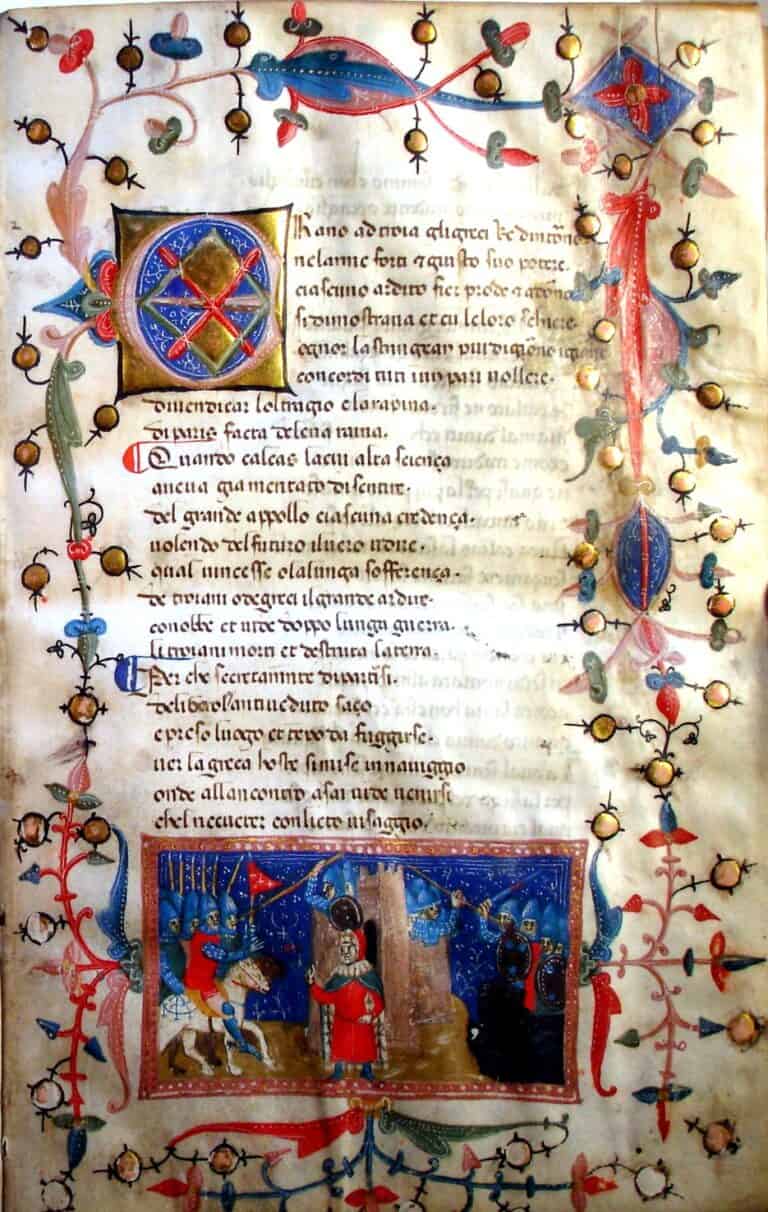 ERano ad troia gli greci Re dintõno
nelarme forti ⁊ giusto suo potere.
ciascuno ardito fier prode ⁊ adõno
si dimostraua et cu leloro schiere
ognor la stringean piu di giõno igiõno
concordi tuti inun pari uollere.
diuendicar loltragio elarapina.
di paris facta delena raina.
Quando calcas lacui alta sciença
aueua gia meritato disentire.
del grande appollo ciascuna credença.
uolendo del futuro iluero udire.
qual uincesse olalunga sofferença.
de troiani odegreci il grande ardire.
conobbe et uide doppo lunga guerra.
li troiani morti et destruta laterra.
Per che secretamẽte dipartirsi.
delibero lantiueduto sagio
e preso luogo et tẽpo da fuggirse.
uer la greca hoste simise in nauiggio
onde allancontro asai uide uenirsi
chel receueter con lieto uisaggio